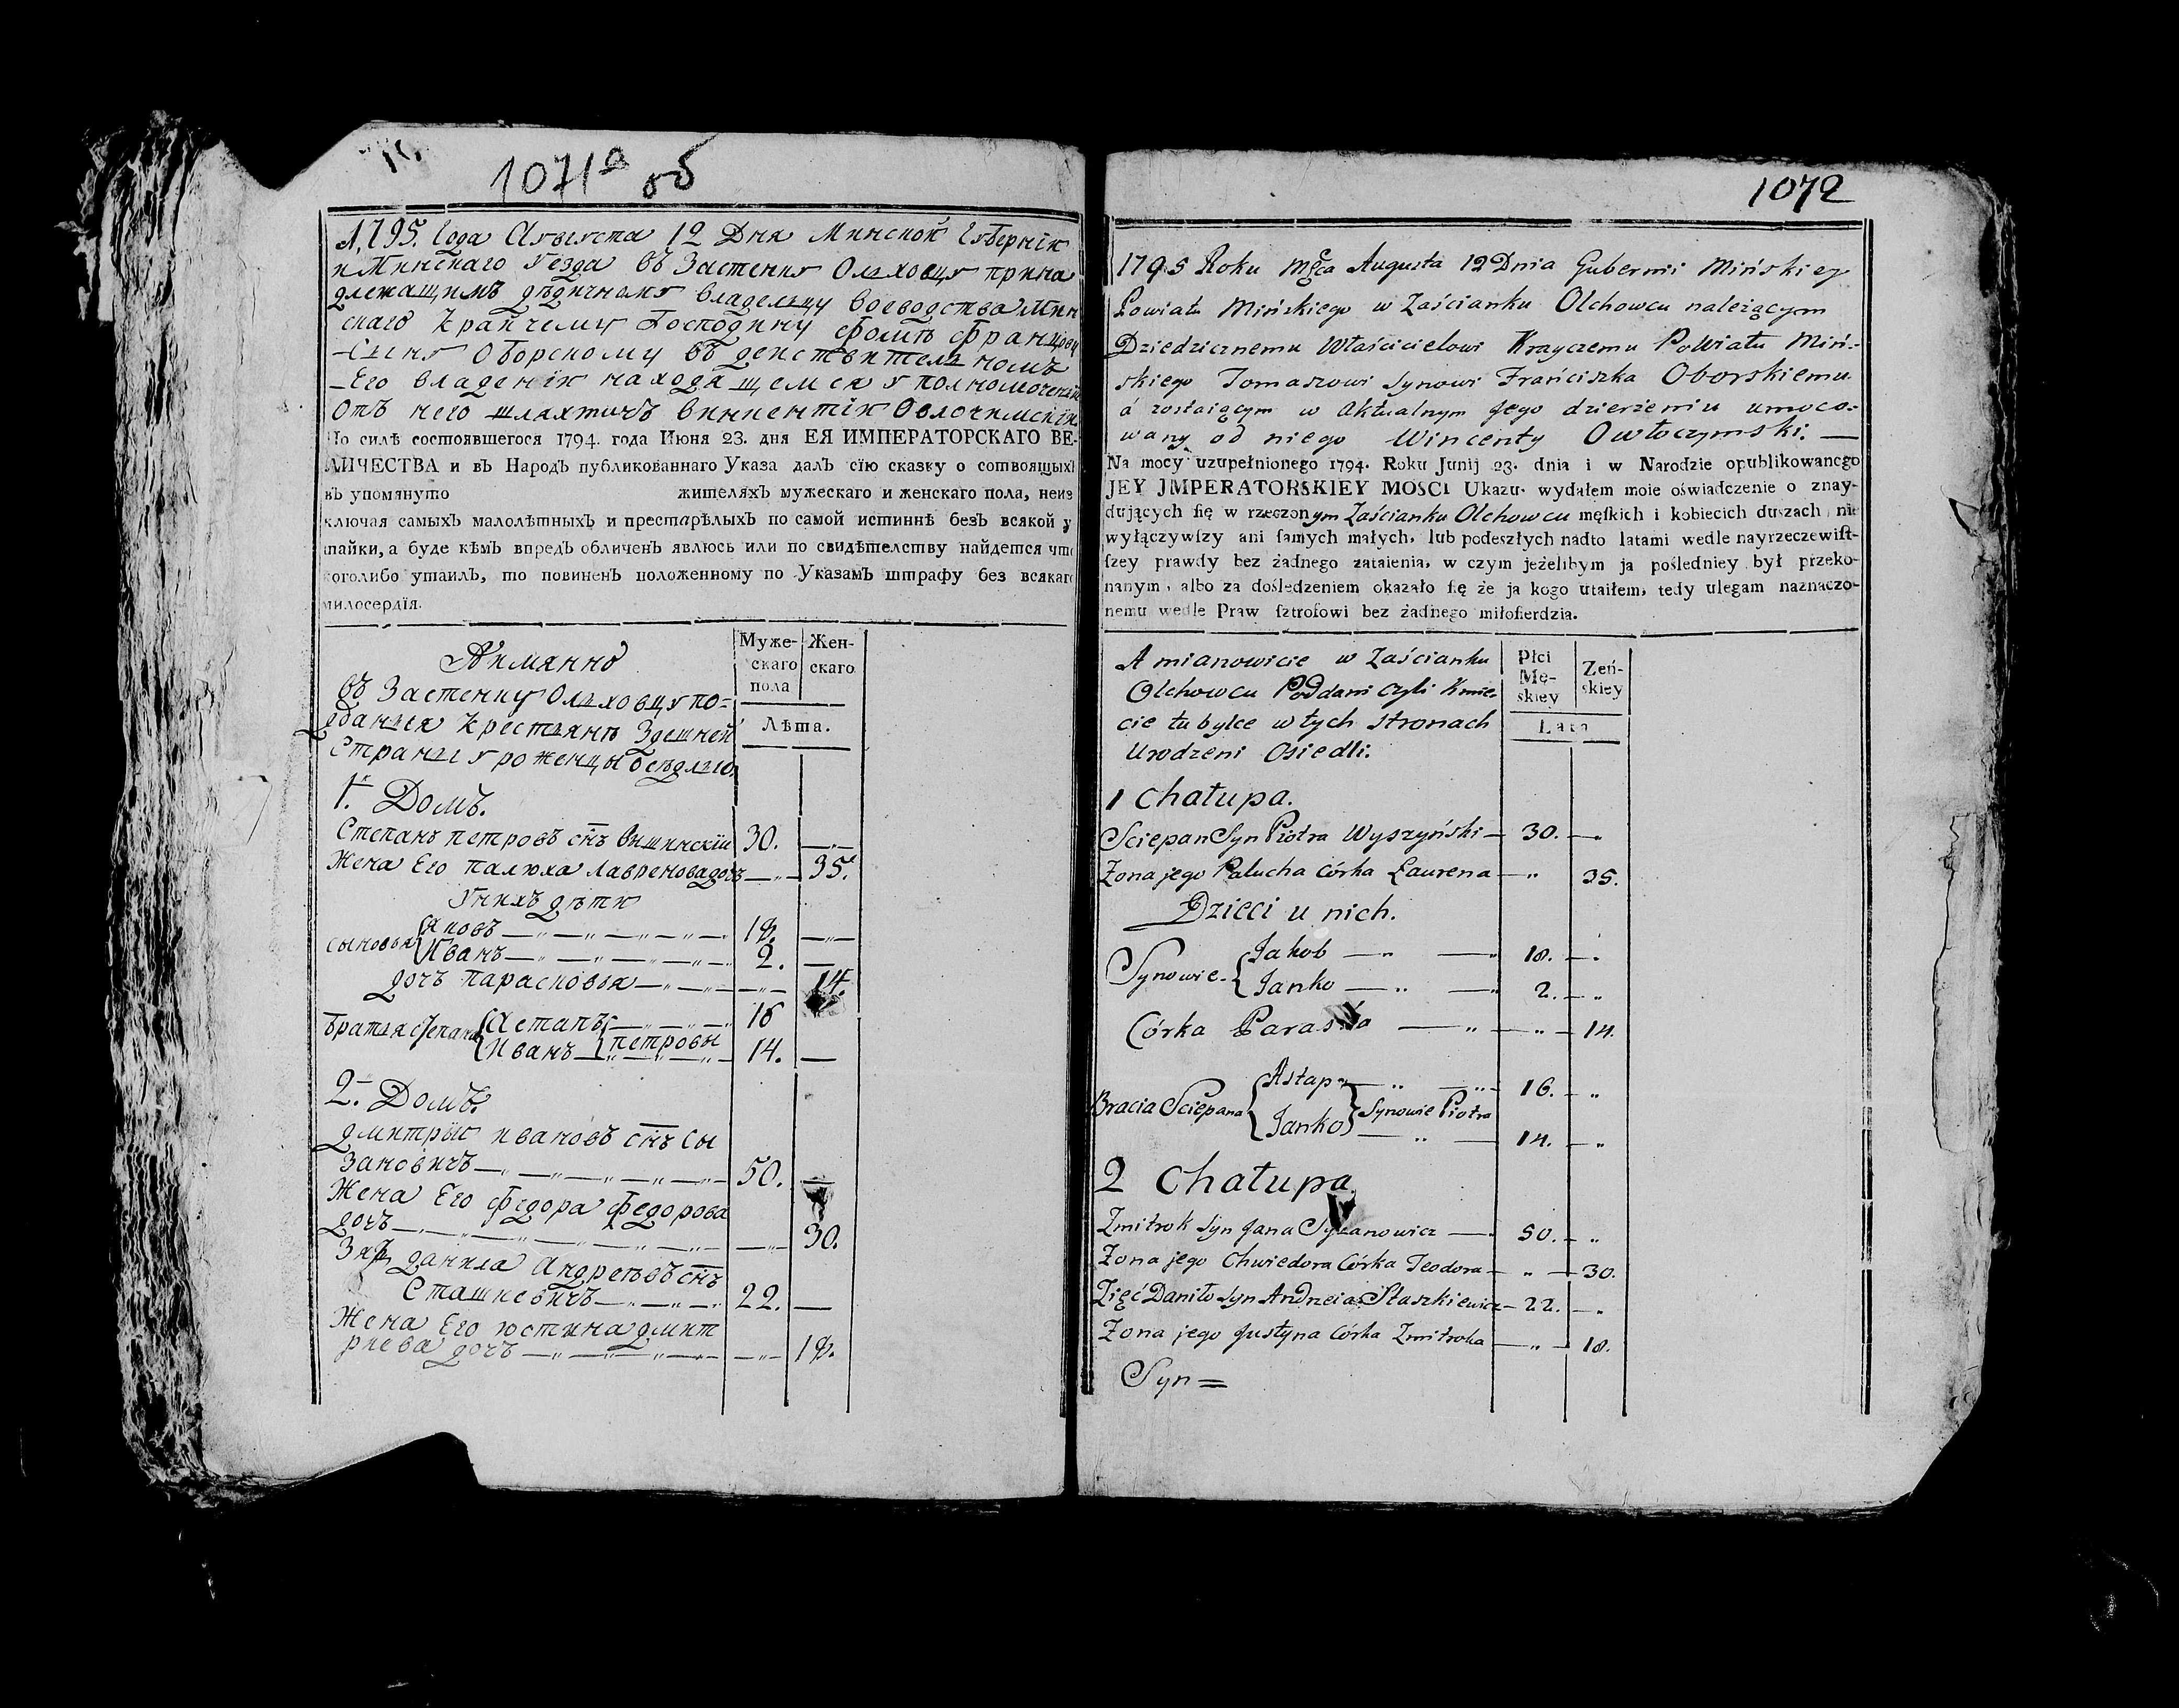 1071а об
1795. Года Августа 12 Дня Минской Губернiи
и Минскаго Уезда въ Застенку Ольховцу прина
длежащимъ дѣдичному владельцу воеводства Мин
скаго Крайчему Господину Фоми Францову
Сыну Оборскому въ действительномъ
Его владенiи находящемся уполномоченый
отъ него шляхтичъ Винцентiи Овлочимскiи
По силѣ состоявшегося 1794. года Июня 23. дня ЕЯ ИМПЕРАТОРСКАГО ВЕ-
ЛИЧЕСТВА и въ Народъ публикованнаго Указа далъ сїю сказку о сотвоящыхъ
въ упомянуто жителяхъ мужескаго и женскаго пола, неиз
ключая самыхъ малолѣтныхъ и престарѣлыхъ по самой истиннѣ безъ всякой у
тайки, а буде кѣмъ впредъ обличенъ явлюсь или по свидѣтелству найдется что
коголибо утаилъ, то повиненъ положенному по Указамъ штрафу без всякаго
милосердїя.
Аимянно
въ Застенку Ольховцу по=
даныя Крестьянѣ Здешней
Страны уроженцы
Муже-
скаго
пола
Жен-
скаго
Лѣта.
1. Домъ.
Степанъ петровъ снъ Вишинскiи 30.
Жена Его палюха Лавренова дочъ 35.
Унихъ дѣти
сыновья Яковъ 18.
Иванъ 2.
дочъ парасковья 14.
братья Степана Астапъ 16
Иванъ петровы 14.
2. Домъ.
дмитрыс ивановъ снъ Сы
зановичъ 50.
Жена Его федора федорова
дочъ 30.
Зять данила Андреѣвъ снъ
Сташкевичъ 22.
Жена Его юстина дмит
риева дочъ 18.
1072
1795 Roku Mśca Augusta 12 Dnia Gubernii Mińskiey
Powiatu Mińskiego w Zaścianku Olchowcu należącym
Dziedzicznemu Właścicielowi Krayczemu Powiatu Miń-
skiego Tomaszowi Synowi Frańciszka Oborskiemu
á zostaiącym w Aktualnym Jego dzierżeniu umoco-
wany od niego Wincenty Owłoczymski.
Na mocy uzupełnionego 1794. Roku Junij 23. dnia i w Narodzie opublikowanego
JEY JMPERATORSKIEY MOSCI Ukazu, wydałem moie oświadczenie o znay-
dujących ſię w rzeczonym Zaścianku Olchowcu męſkich i kobiecich duszach nie
wyłączywſzy ani ſamych małych, lub podeszłych nadto latami wedle nayrzeczewiſt-
ſzey prawdy bez żadnego zataienia, w czym jeżelibym ja pośledniey był przeko-
nanym, albo za dośledzeniem okazało ſię że ja kogo utaiłem, tedy ulegam naznaczo-
nemu wedle Praw ſztrofowi bez żadnego miłoſierdzia.
A mianowicie w Zaścianku
Olchowcu Poddani czyli Kmie-
cie tubylce w tych stronach
Urodzeni Osiedli.
Płci
Mę-
skiey
Żeń-
skiey
Lata
1 Chałupa.
Sciepan Syn Piotra Wyszyński 30.
Żona jego Palucha Córka Laurena 35.
Dzieci u nich.
Synowie Jakob 18.
Janko 2.
Córka Parasia 14.
Bracia Sciepana Astap 16.
Janko Synowie Piotra 14.
2 Chałupa.
Zmitrok Syn Jana Syzanowicz 50.
Żona jego Chwiedora Córka Teodora 30.
Zięć Daniło Syn Andrzeia Staszkiewicz 22.
Żona jego Justyna Córka Zmitroka 18.
Syn =